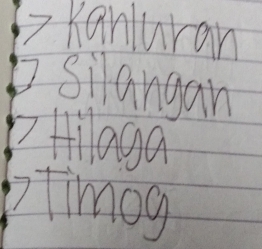 > Kanluran
> Silangan
> Hilaga
> Timog